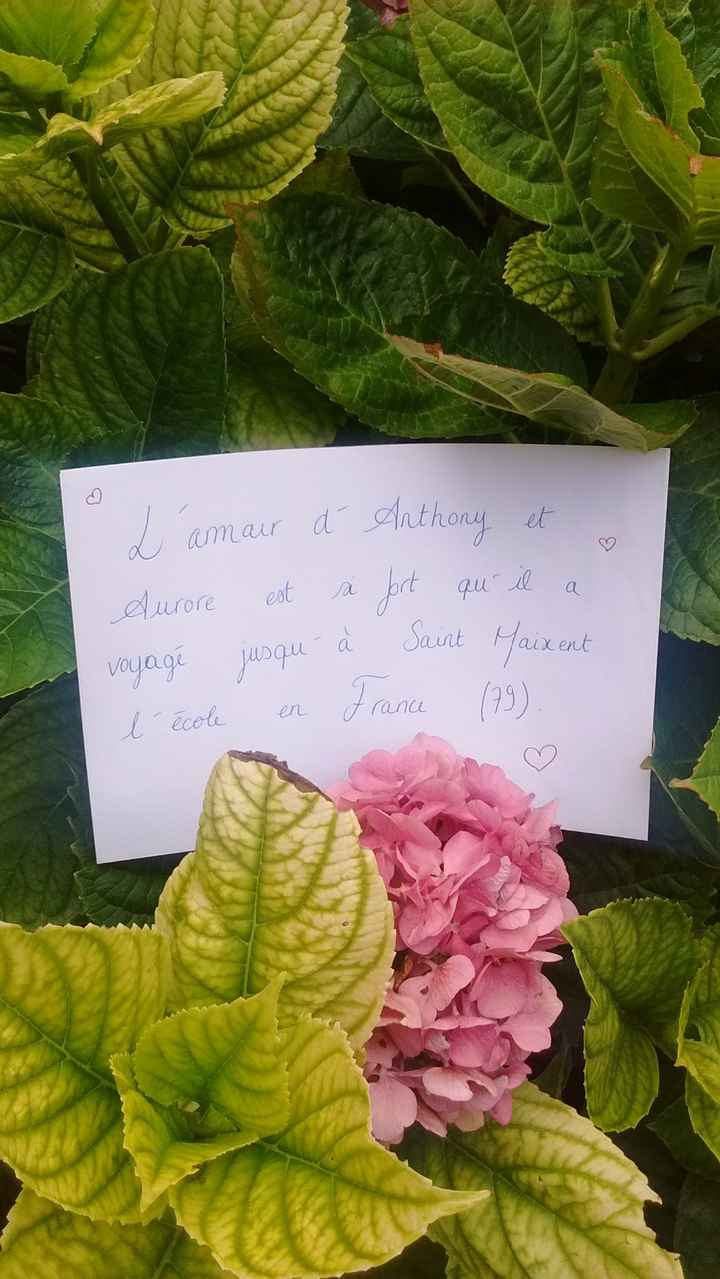 L'amour d'Anthony et
Aurore est si fort qu'il a
voyagé jusqu'à Saint Maixent
l'école en France (79).